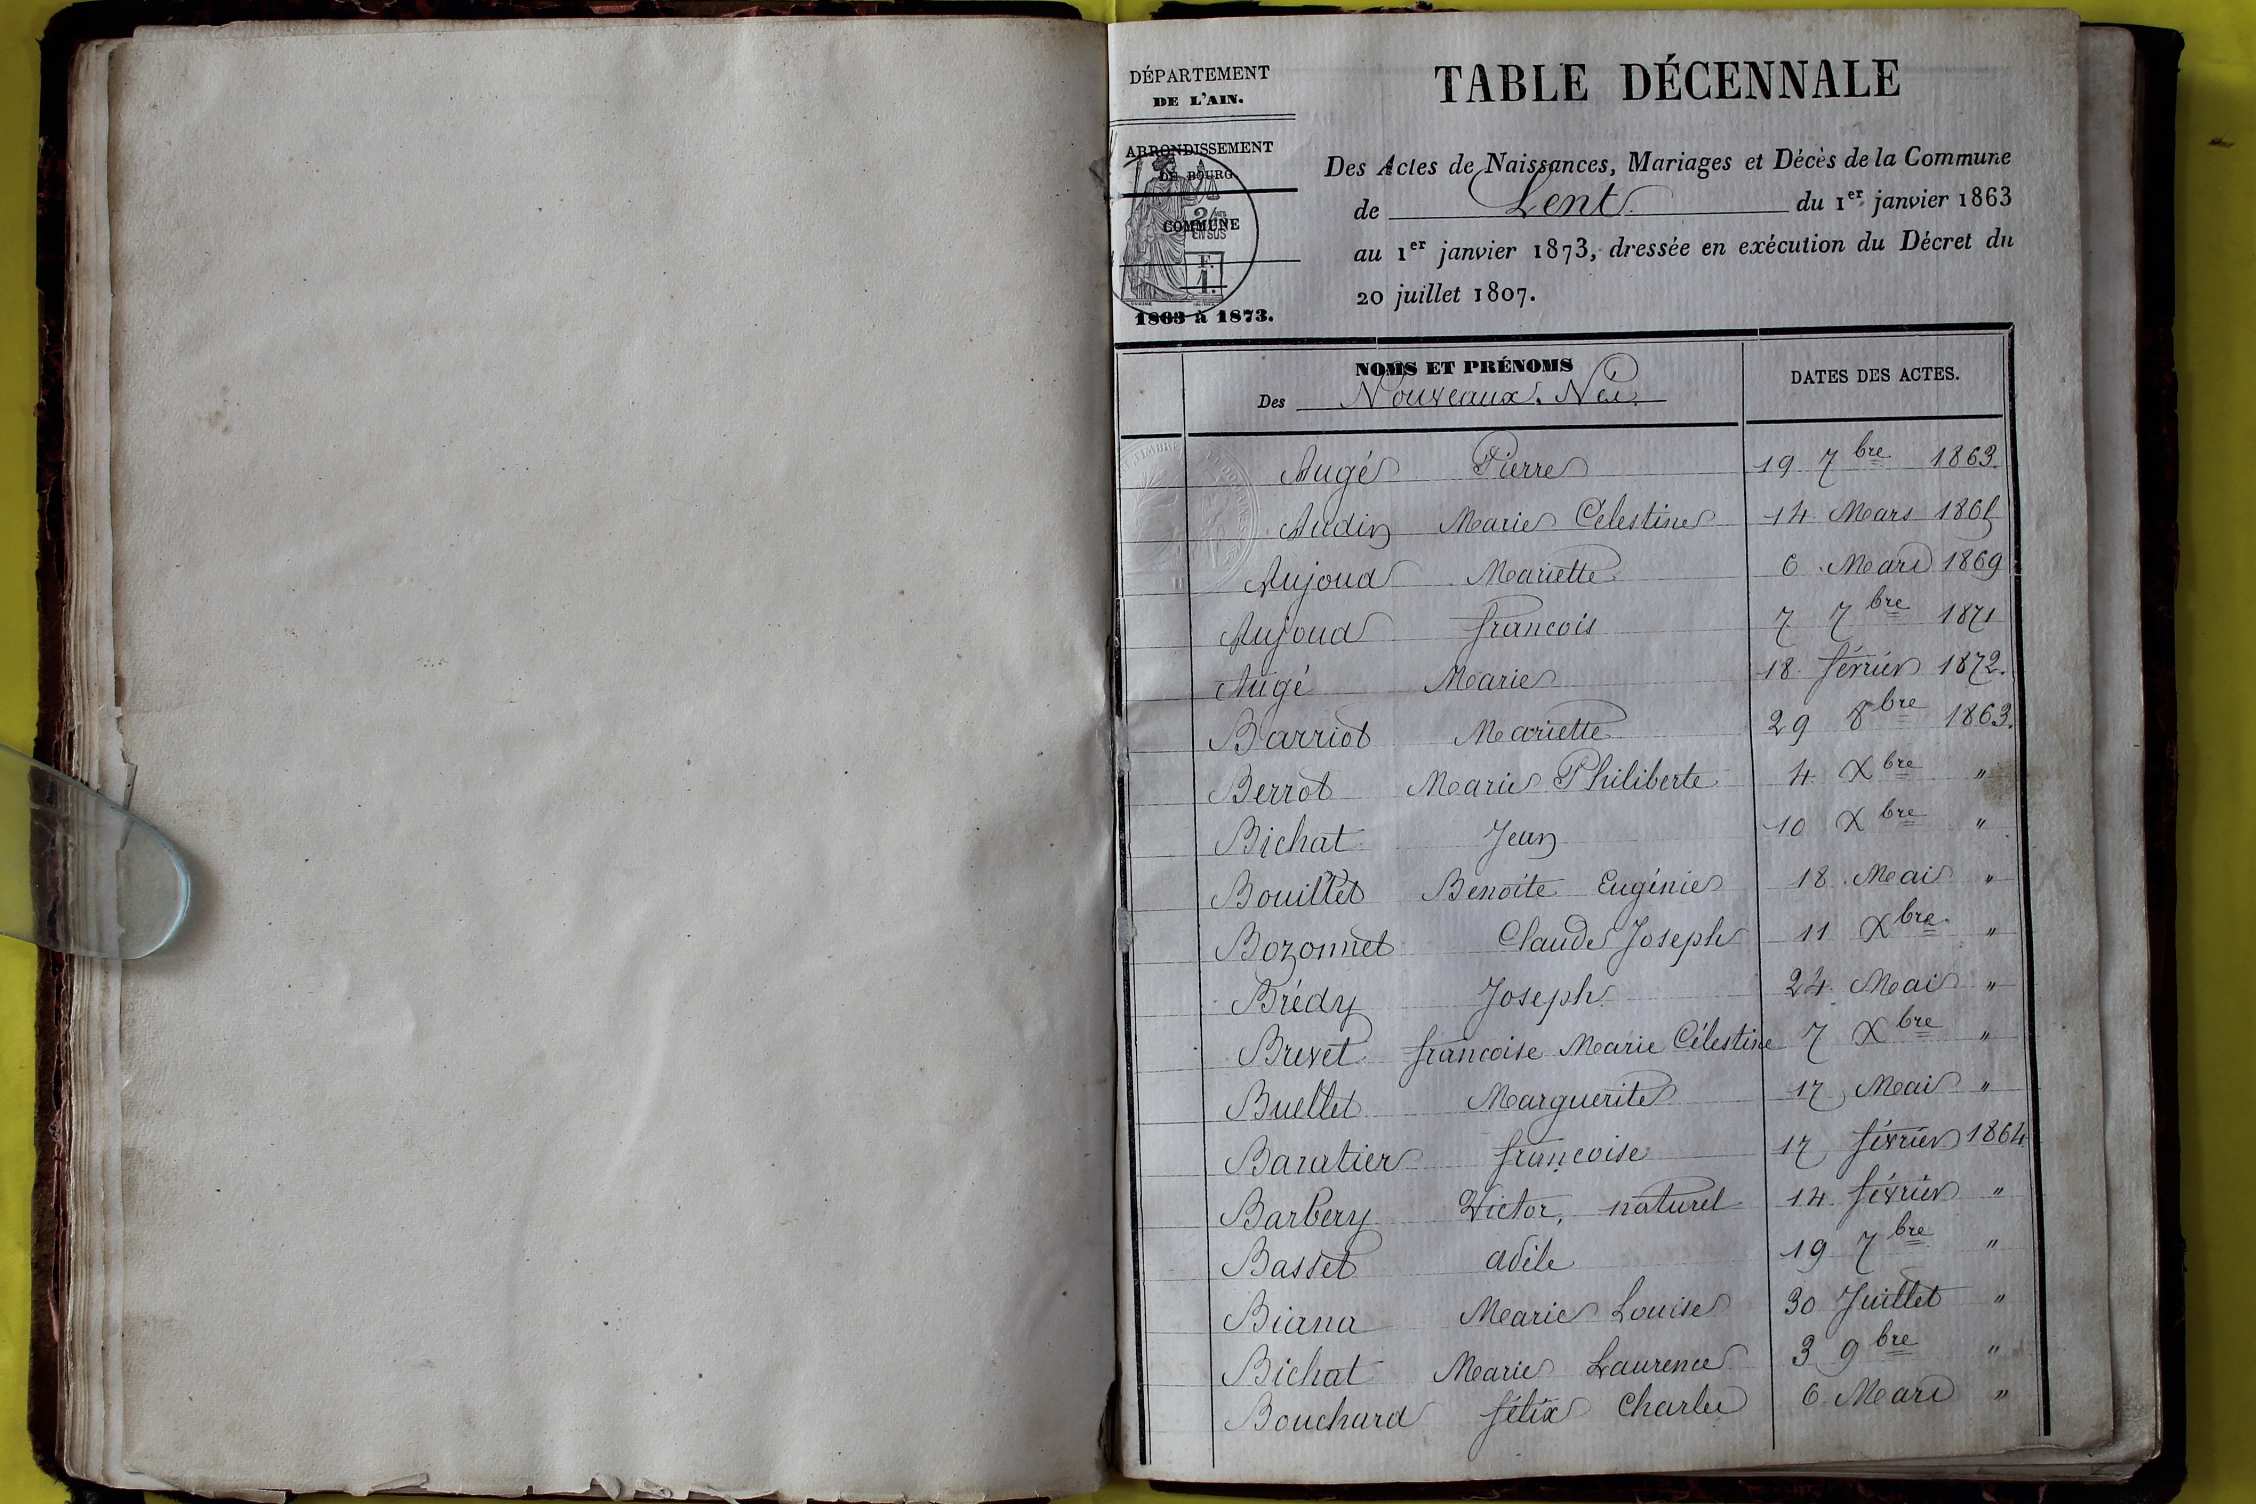 DÉPARTEMENT
DE L'AIN.
ARRONDISSEMENT
DE BOURG
COMMUNE
EN SUS
F.
1.
1863 à 1873.
TABLE DÉCENNALE
Des Actes de Naissances, Mariages et Décès de la Commune
de Lent du 1er janvier 1863
au 1er janvier 1873, dressée en exécution du Décret du
20 juillet 1807.
NOMS ET PRÉNOMS DATES DES ACTES.
Des Nouveaux. Nés.
Augé Pierre 19 7bre 1863.
Audin Marie Célestine 14 Mars 1865
Aujoud Mariette 6 Mars 1869
Aujoud françois 7 7bre 1871
Augé Marie 18 février 1872.
Barriot Mariette 29 8bre 1863.
Berrot Marie Philiberte 4 Xbre "
Bichat Jean 10 Xbre "
Bouillet Benoîte Eugénie 18 Mai "
Bozonnet Claude Joseph 11 Xbre "
Brédy Joseph 24 Mai "
Brevet francoise Marie Célestine 7 Xbre "
Buellet Marguerite 17 Mai "
Baratier françoise 17 février 1864
Barbery Victor, naturel 14 février "
Basset adèle 19 7bre "
Biana Marie Louise 30 Juillet "
Bichat Marie Laurence 3 9bre "
Bouchard félix Charles 6 Mars "